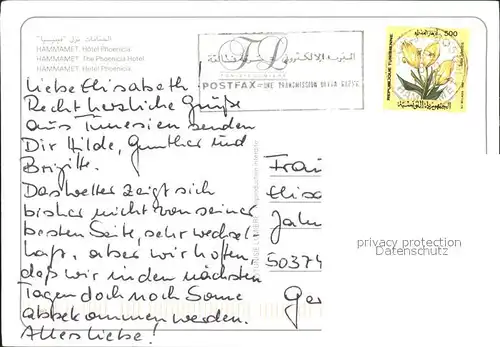 الحمامات نزل "فينيسيا"
HAMMAMET: Hôtel Phoenicia
HAMMAMET: The Phoenicia Hotel
HAMMAMET: Hotel Phoenicia
POSTFAX=UNE TRANSMISSION ULTRA RAPIDE
500
REPUBLIQUE TUNISIENNE
الجمهورية التونسية
Liebe Elisabeth
Recht herzliche Grüße
aus Tunesien senden
Dir Hilde, Gunther und
Brigitte.
Das Wetter zeigt sich
bisher nicht von seiner
besten Seite, sehr wechsel-
haft, aber wir hoffen,
daß wir in den nächsten
Tagen doch noch Sonne
abbekommen werden.
Alles Liebe!
Frau
Elisa
Jahn
50374
Ger
privacy protection
Datenschutz